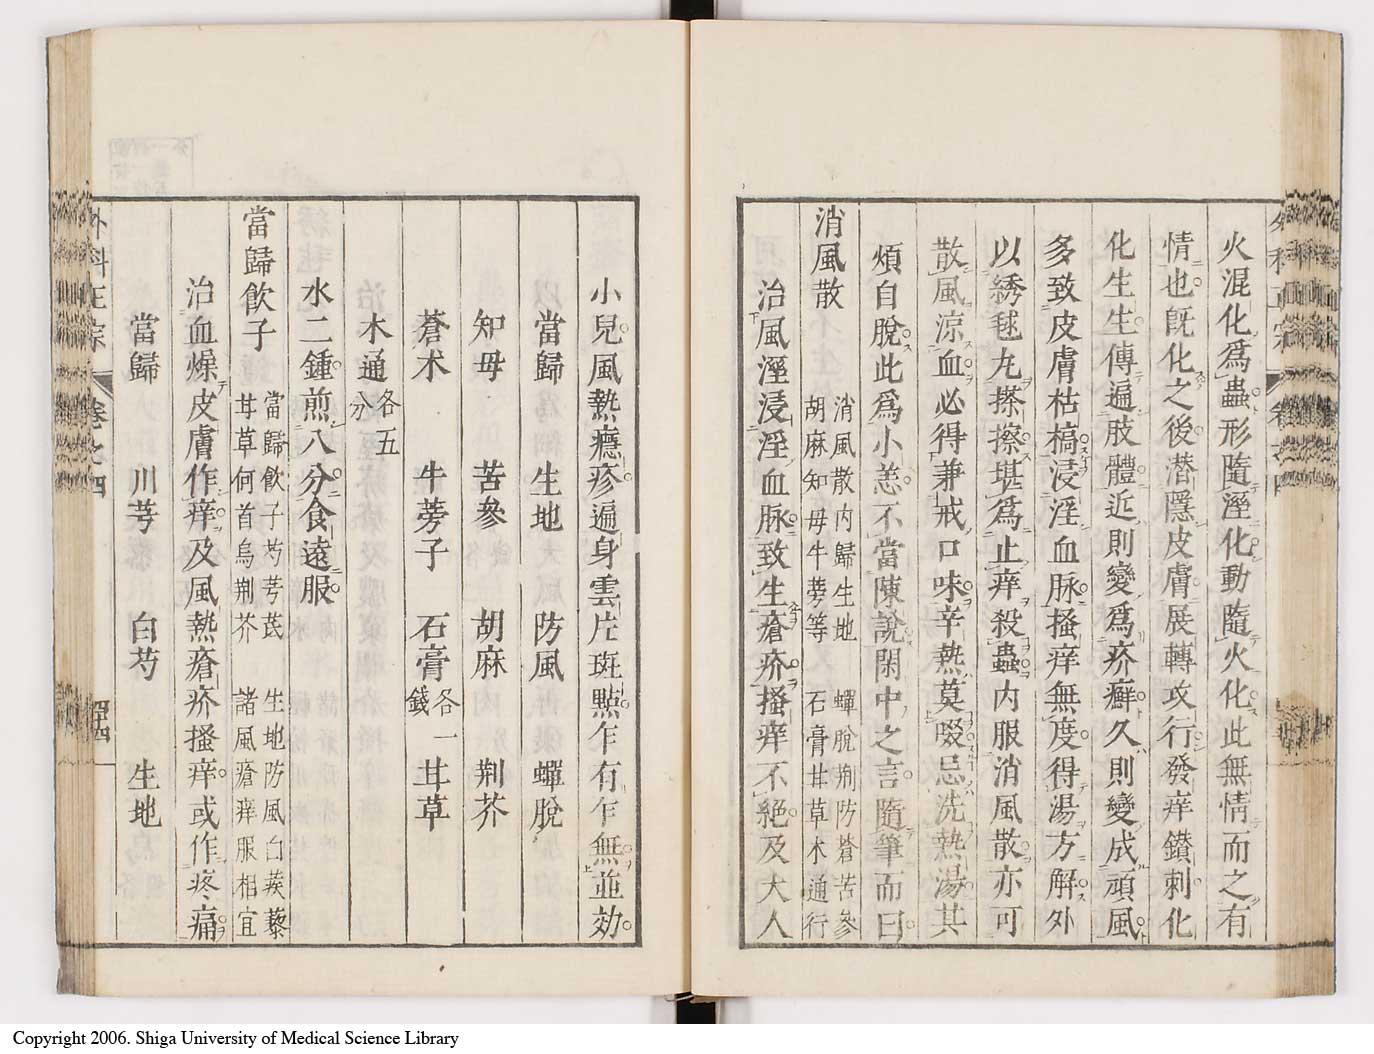 火混化爲蟲形隨溼化動隨火化此無情而之有
情也旣化之後潜隱皮膚展轉攻行發痒鑚刺化
化生生傳遍肢體近則變爲疥癬久則變成頑風
多致皮膚枯槁浸淫血脉搔痒無度得湯方解外
以綉毬丸搽擦堪爲止痒殺蟲内服消風散亦可
散風涼血必得兼戒口味辛熱莫啜忌洗熱湯其
煩自脫此爲小恙不當陳說閑中之言隨筆而曰
消風散
消風散内歸生地 蟬脫荆防蒼苦參
胡麻知母牛蒡等 石膏甘草木通行
治風溼浸淫血脉致生瘡疥搔痒不絕及大人
小兒風熱癮疹遍身雲片斑㸃乍有乍無並効
當歸 生地 防風 蟬脫
知母 苦參 胡麻 荆芥
蒼术 牛蒡子 石膏各一錢 甘草
木通各五分
水二鍾煎八分食遠服
當歸飲子
當歸飲子芍芎芪 生地防風白蒺藜
甘草何首烏荆芥 諸風瘡痒服相宜
治血燥皮膚作痒及風熱瘡疥搔痒或作疼痛
當歸 川芎 白芍 生地
外科正宗 卷之四
Copyright 2006. Shiga University of Medical Science Library